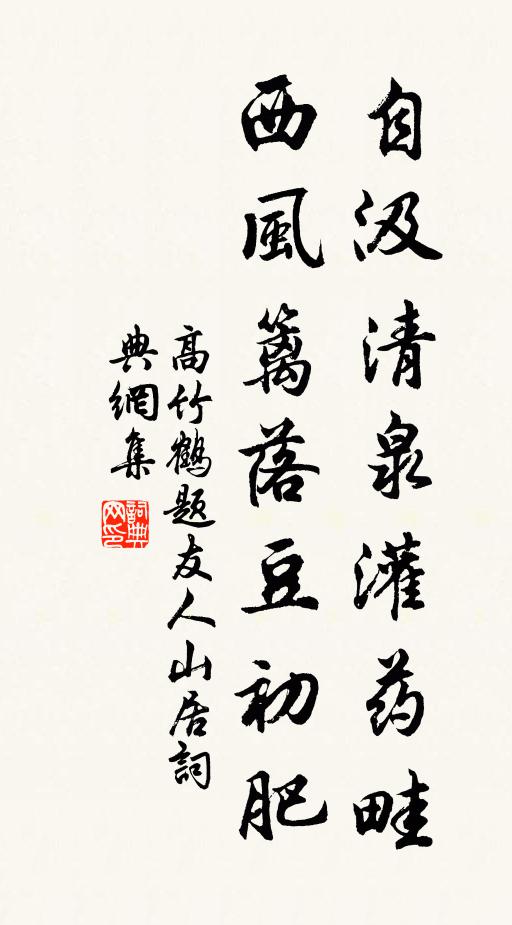 自汲清泉灌药畦
西風籬落豆初肥
高竹鶴題友人山居詞
典網集
詞典
网印